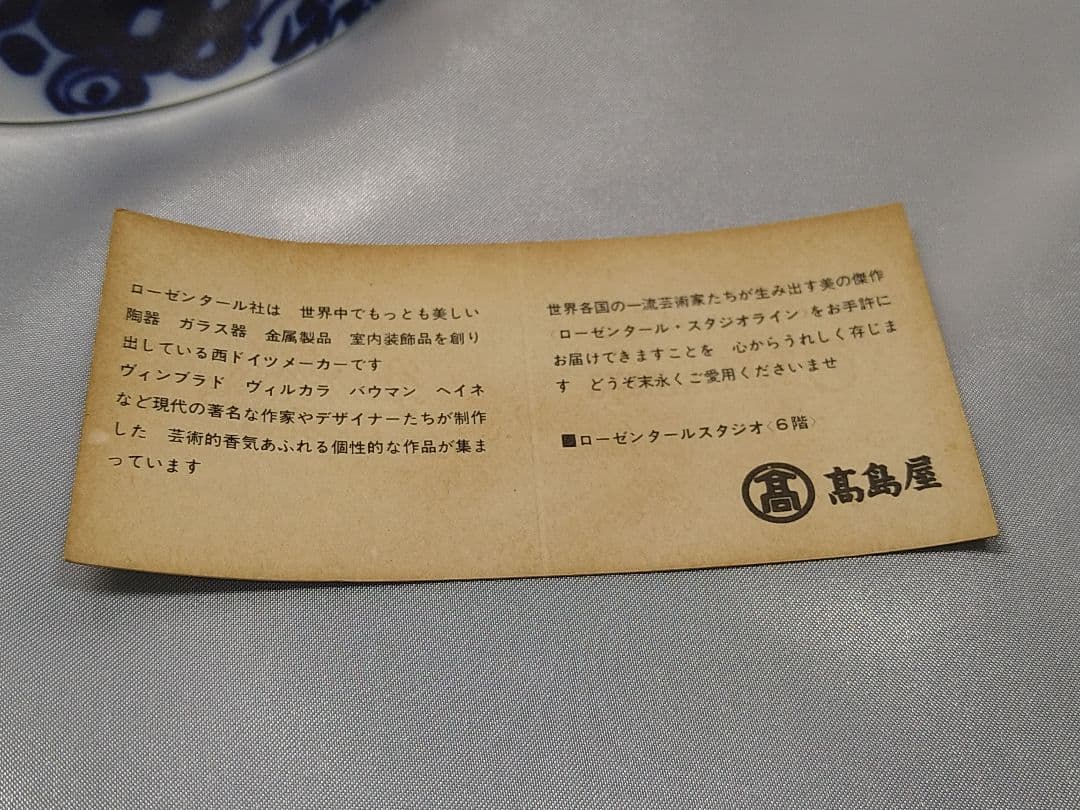 ローゼンタール社は　世界中でもっとも美しい
陶器　ガラス器　金属製品　室内装飾品を創り
出している西ドイツメーカーです
ヴィンブラド　ヴィルカラ　バウマン　ヘイネ
など現代の著名な作家やデザイナーたちが制作
した　芸術的香気あふれる個性的な作品が集ま
っています
世界各国の一流芸術家たちが生み出す美の傑作
〈ローゼンタール・スタジオライン〉をお手許に
お届けできますことを　心からうれしく存じま
す　どうぞ末永くご愛用くださいませ
■ローゼンタールスタジオ〈6階〉
髙 髙島屋